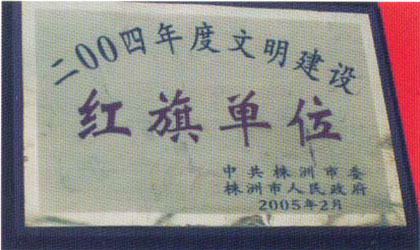 二00四年度文明建设
红旗单位
中共株洲市委
株洲市人民政府
2005年2月